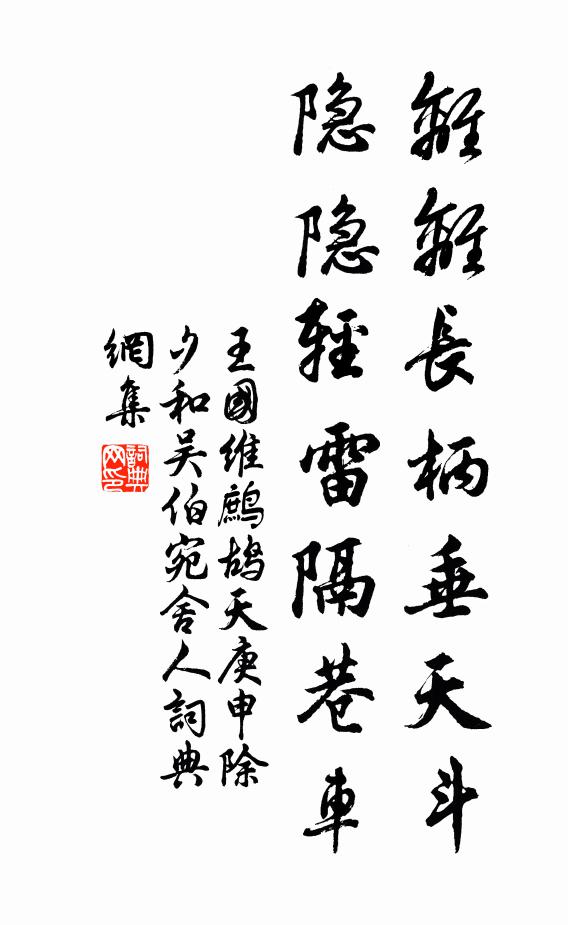 離離長柄垂天斗
隐隐輕雷隔巷車
王國維鷓鴣天庚申除
夕和吴伯宛舍人詞典
網集
詞典网印